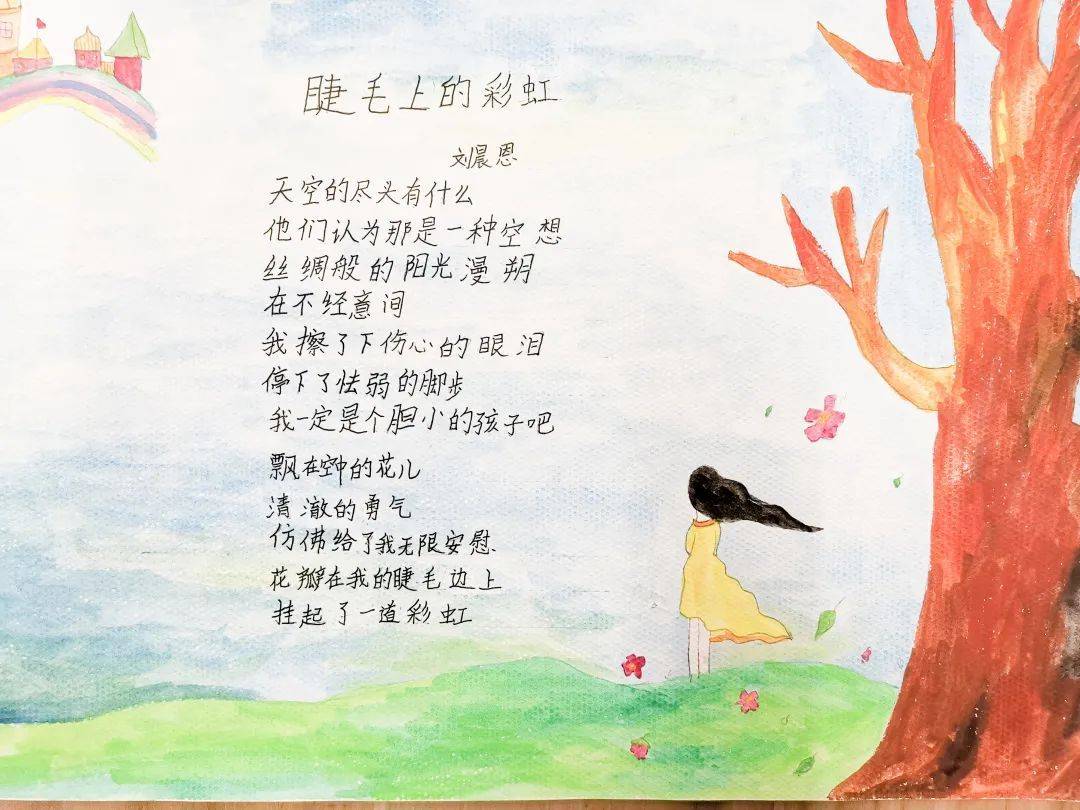 睫毛上的彩虹
刘晨恩
天空的尽头有什么
他们认为那是一种空想
丝绸般的阳光漫朔
在不经意间
我擦了下伤心的眼泪
停下了怯弱的脚步
我一定是个胆小的孩子吧
飘在空中的花儿
清澈的勇气
仿佛给了我无限安慰
花瓣在我的睫毛边上
挂起了一道彩虹